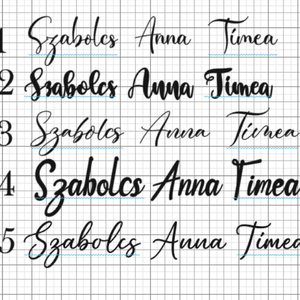 1 Szabolcs Anna Tímea
2 Szabolcs Anna Tímea
3 Szabolcs Anna Tímea
4 Szabolcs Anna Tímea
5 Szabolcs Anna Tímea